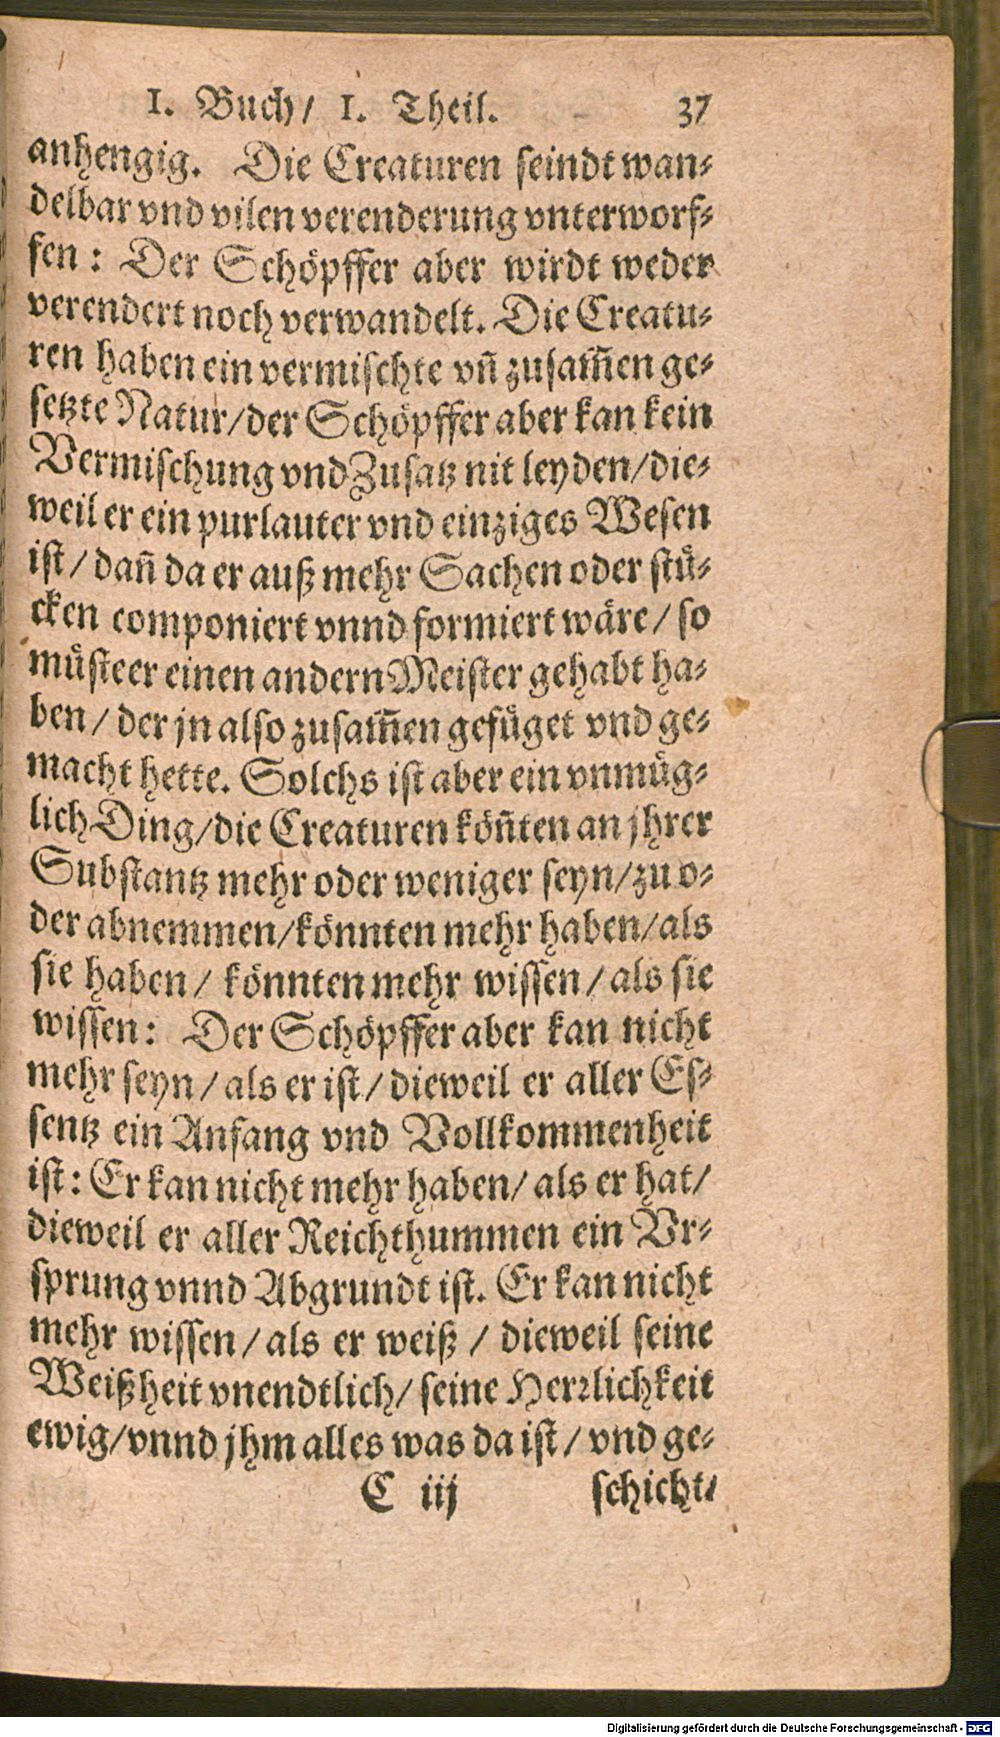 1. Buch/ 1. Theil. 37
anhengig. Die Creaturen ſeindt wan⸗
delbar vnd vilen verenderung vnterworf⸗
fen: Der Schöpffer aber wirdt weder
verendert noch verwandelt. Die Creatu⸗
ren haben ein vermiſchte vñ zuſam̃en ge⸗
ſetzte Natur/der Schöpffer aber kan kein
Vermiſchung vnd Zuſatz nit leyden/die⸗
weil er ein purlauter vnd einziges Weſen
iſt/ dañ da er auß mehr Sachen oder ſtü⸗
cken componiert vnnd formiert wäre/ ſo
müſte er einen andern Meiſter gehabt ha⸗
ben/ der jn alſo zuſam̃en gefüget vnd ge⸗
macht hette. Solchs iſt aber ein vnmüg⸗
lich Ding/die Creaturen köñten an jhrer
Subſtantz mehr oder weniger ſeyn/zu o⸗
der abnemmen/könnten mehr haben/als
ſie haben/ könnten mehr wiſſen/als ſie
wiſſen: Der Schöpffer aber kan nicht
mehr ſeyn/als er iſt/ dieweil er aller Eſ⸗
ſentz ein Anfang vnd Vollkommenheit
iſt: Er kan nicht mehr haben/ als er hat/
dieweil er aller Reichthummen ein Vr⸗
ſprung vnnd Abgrundt iſt. Er kan nicht
mehr wiſſen/als er weiß/ dieweil ſeine
Weißheit vnendtlich/ ſeine Herꝛlichkeit
ewig/vnnd jhm alles was da iſt/ vnd ge⸗
C iij ſchicht/
Digitalisierung gefördert durch die Deutsche Forschungsgemeinschaft - DFG